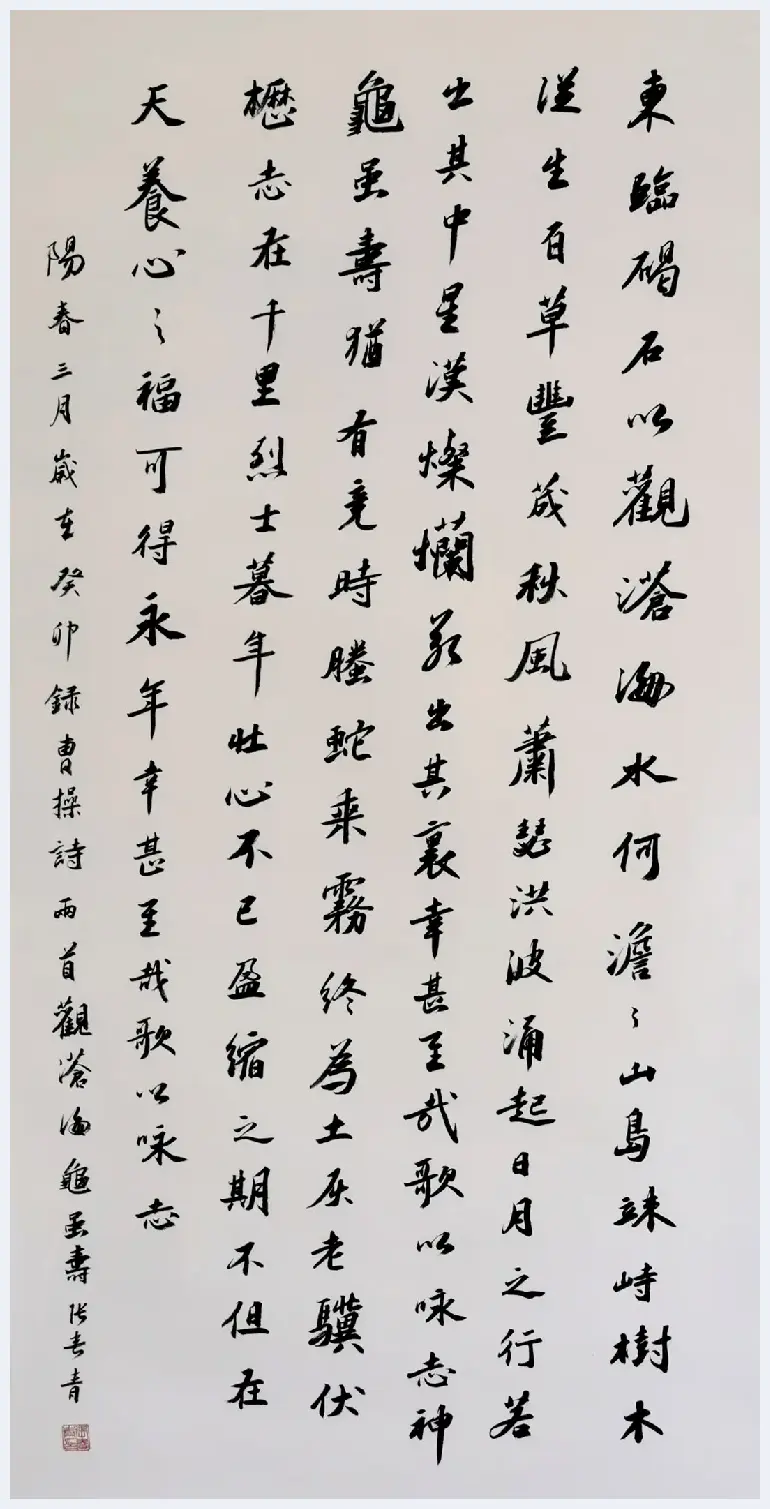 東臨碣石以觀滄海水何澹〻山島竦峙樹木
從生百草豐茂秋風蕭瑟洪波涌起日月之行若
出其中星漢燦爛若出其裏幸甚至哉歌以咏志神
龜虽壽猶有竟時螣蛇乘霧終為土灰老驥伏
櫪志在千里烈士暮年壯心不已盈縮之期不但在
天養心〻福可得永年幸甚至哉歌以咏志
陽春三月歲在癸卯録曹操詩兩首觀滄海龜虽壽張長青